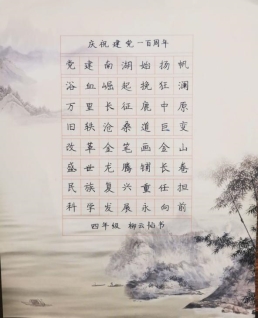 庆祝建党一百周年
党建南湖始扬帆
浴血崛起挽狂澜
万里长征鹿中原
旧轶沧桑道巨变
改革金笔画金山
盛世龙腾铺长卷
民族复兴重任担
科学发展永向前
四年级 柳云怡书